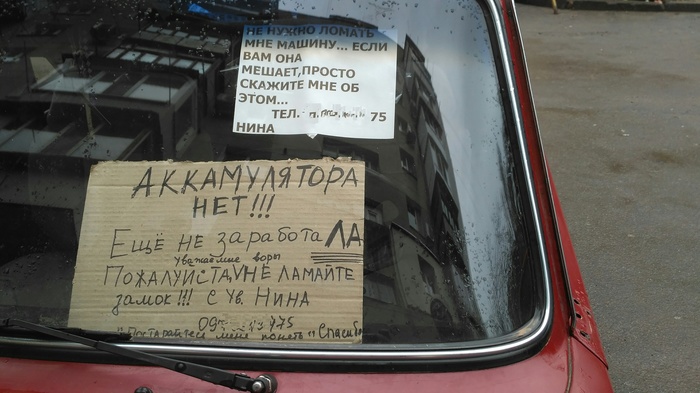 НЕ НУЖНО ЛОМАТЬ
МНЕ МАШИНУ... ЕСЛИ
ВАМ ОНА
МЕШАЕТ,ПРОСТО
СКАЖИТЕ МНЕ ОБ
ЭТОМ...
ТЕЛ. 75
НИНА
АККАМУЛЯТОРА
НЕТ!!!
ЕЩЁ НЕ ЗАРАБОТАЛА
Уважаемые воры
ПОЖАЛУЙСТА, НЕ ЛАМАЙТЕ
ЗАМОК!!! С УВ. НИНА
775
"Постарайтесь меня понять" Спасибо